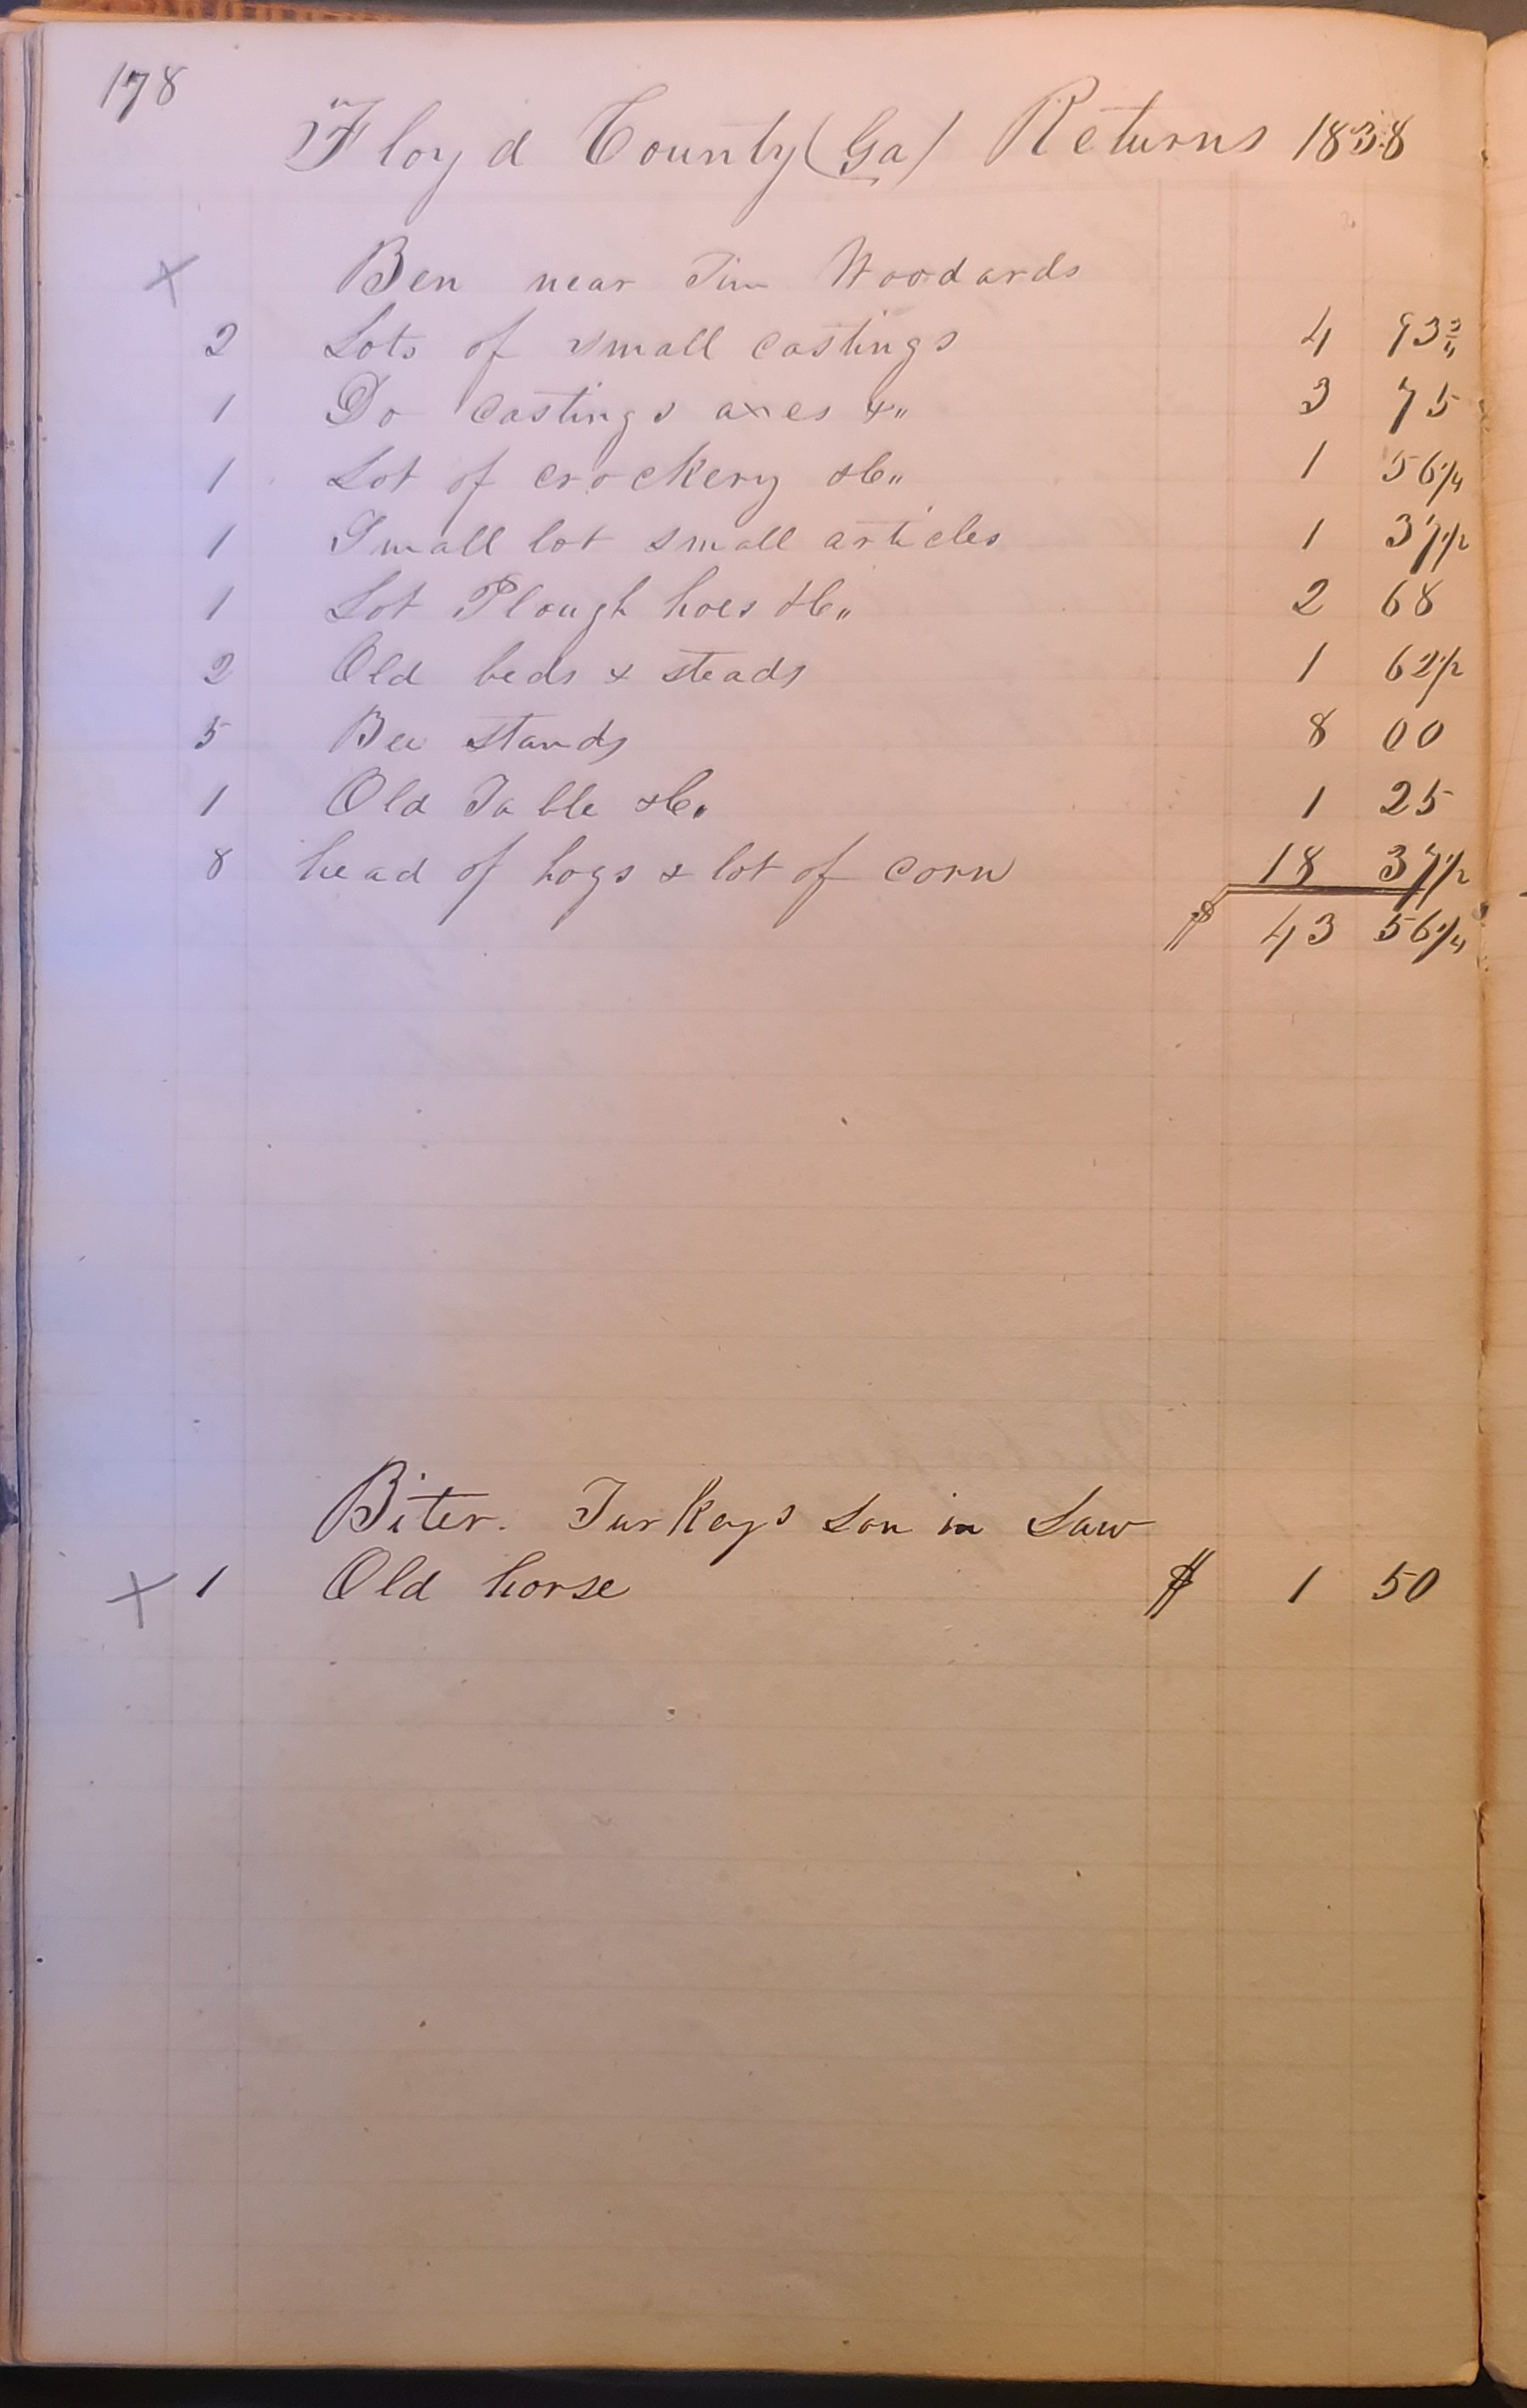 178
Floyd County (Ga) Returns 1838
x Ben near Tim Woodards
2 Lots of small castings 4 93 3/4
1 Do castings axes &"
3 75
1 Lot of crockery &c" 1 56 1/4
1 Small lot small articles 1 37 1/2
1 Lot Plough hoes &c" 2 68
2 Old beds & steads 1 62 1/2
5 Bee stands 8 00
1 Old Table &c. 1 25
8 head of hogs & lot of corn 18 37 1/2
$ 43 56 1/4
Biter. Turkeys Son in Law
x 1 Old horse $ 1 50